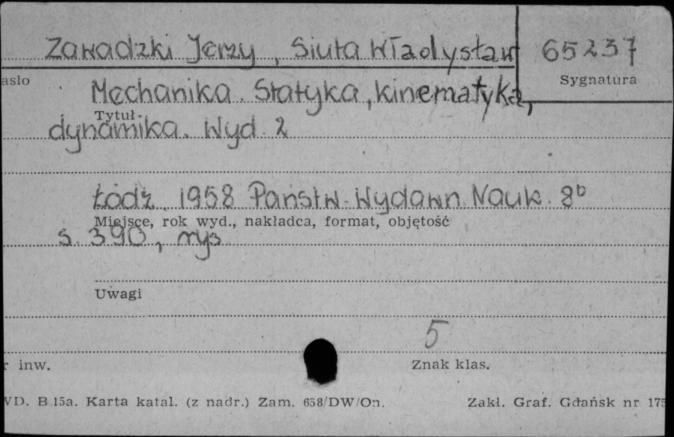 Zawadzki Jerzy, Siuta Władysław 65237
asło
Sygnatura
Mechanika. Statyka, kinematyka,
Tytuł.
dynamika. Wyd. 2
Łódź 1958 Państw. Wydawn. Nauk. 8°
Miejsce, rok wyd., nakładca, format, objętość
s. 390, rys
Uwagi
5
r inw.
Znak klas.
WD. B 15a. Karta katal. (z nadr.) Zam. 658/DW/On. Zakł. Graf. Gdańsk nr 175